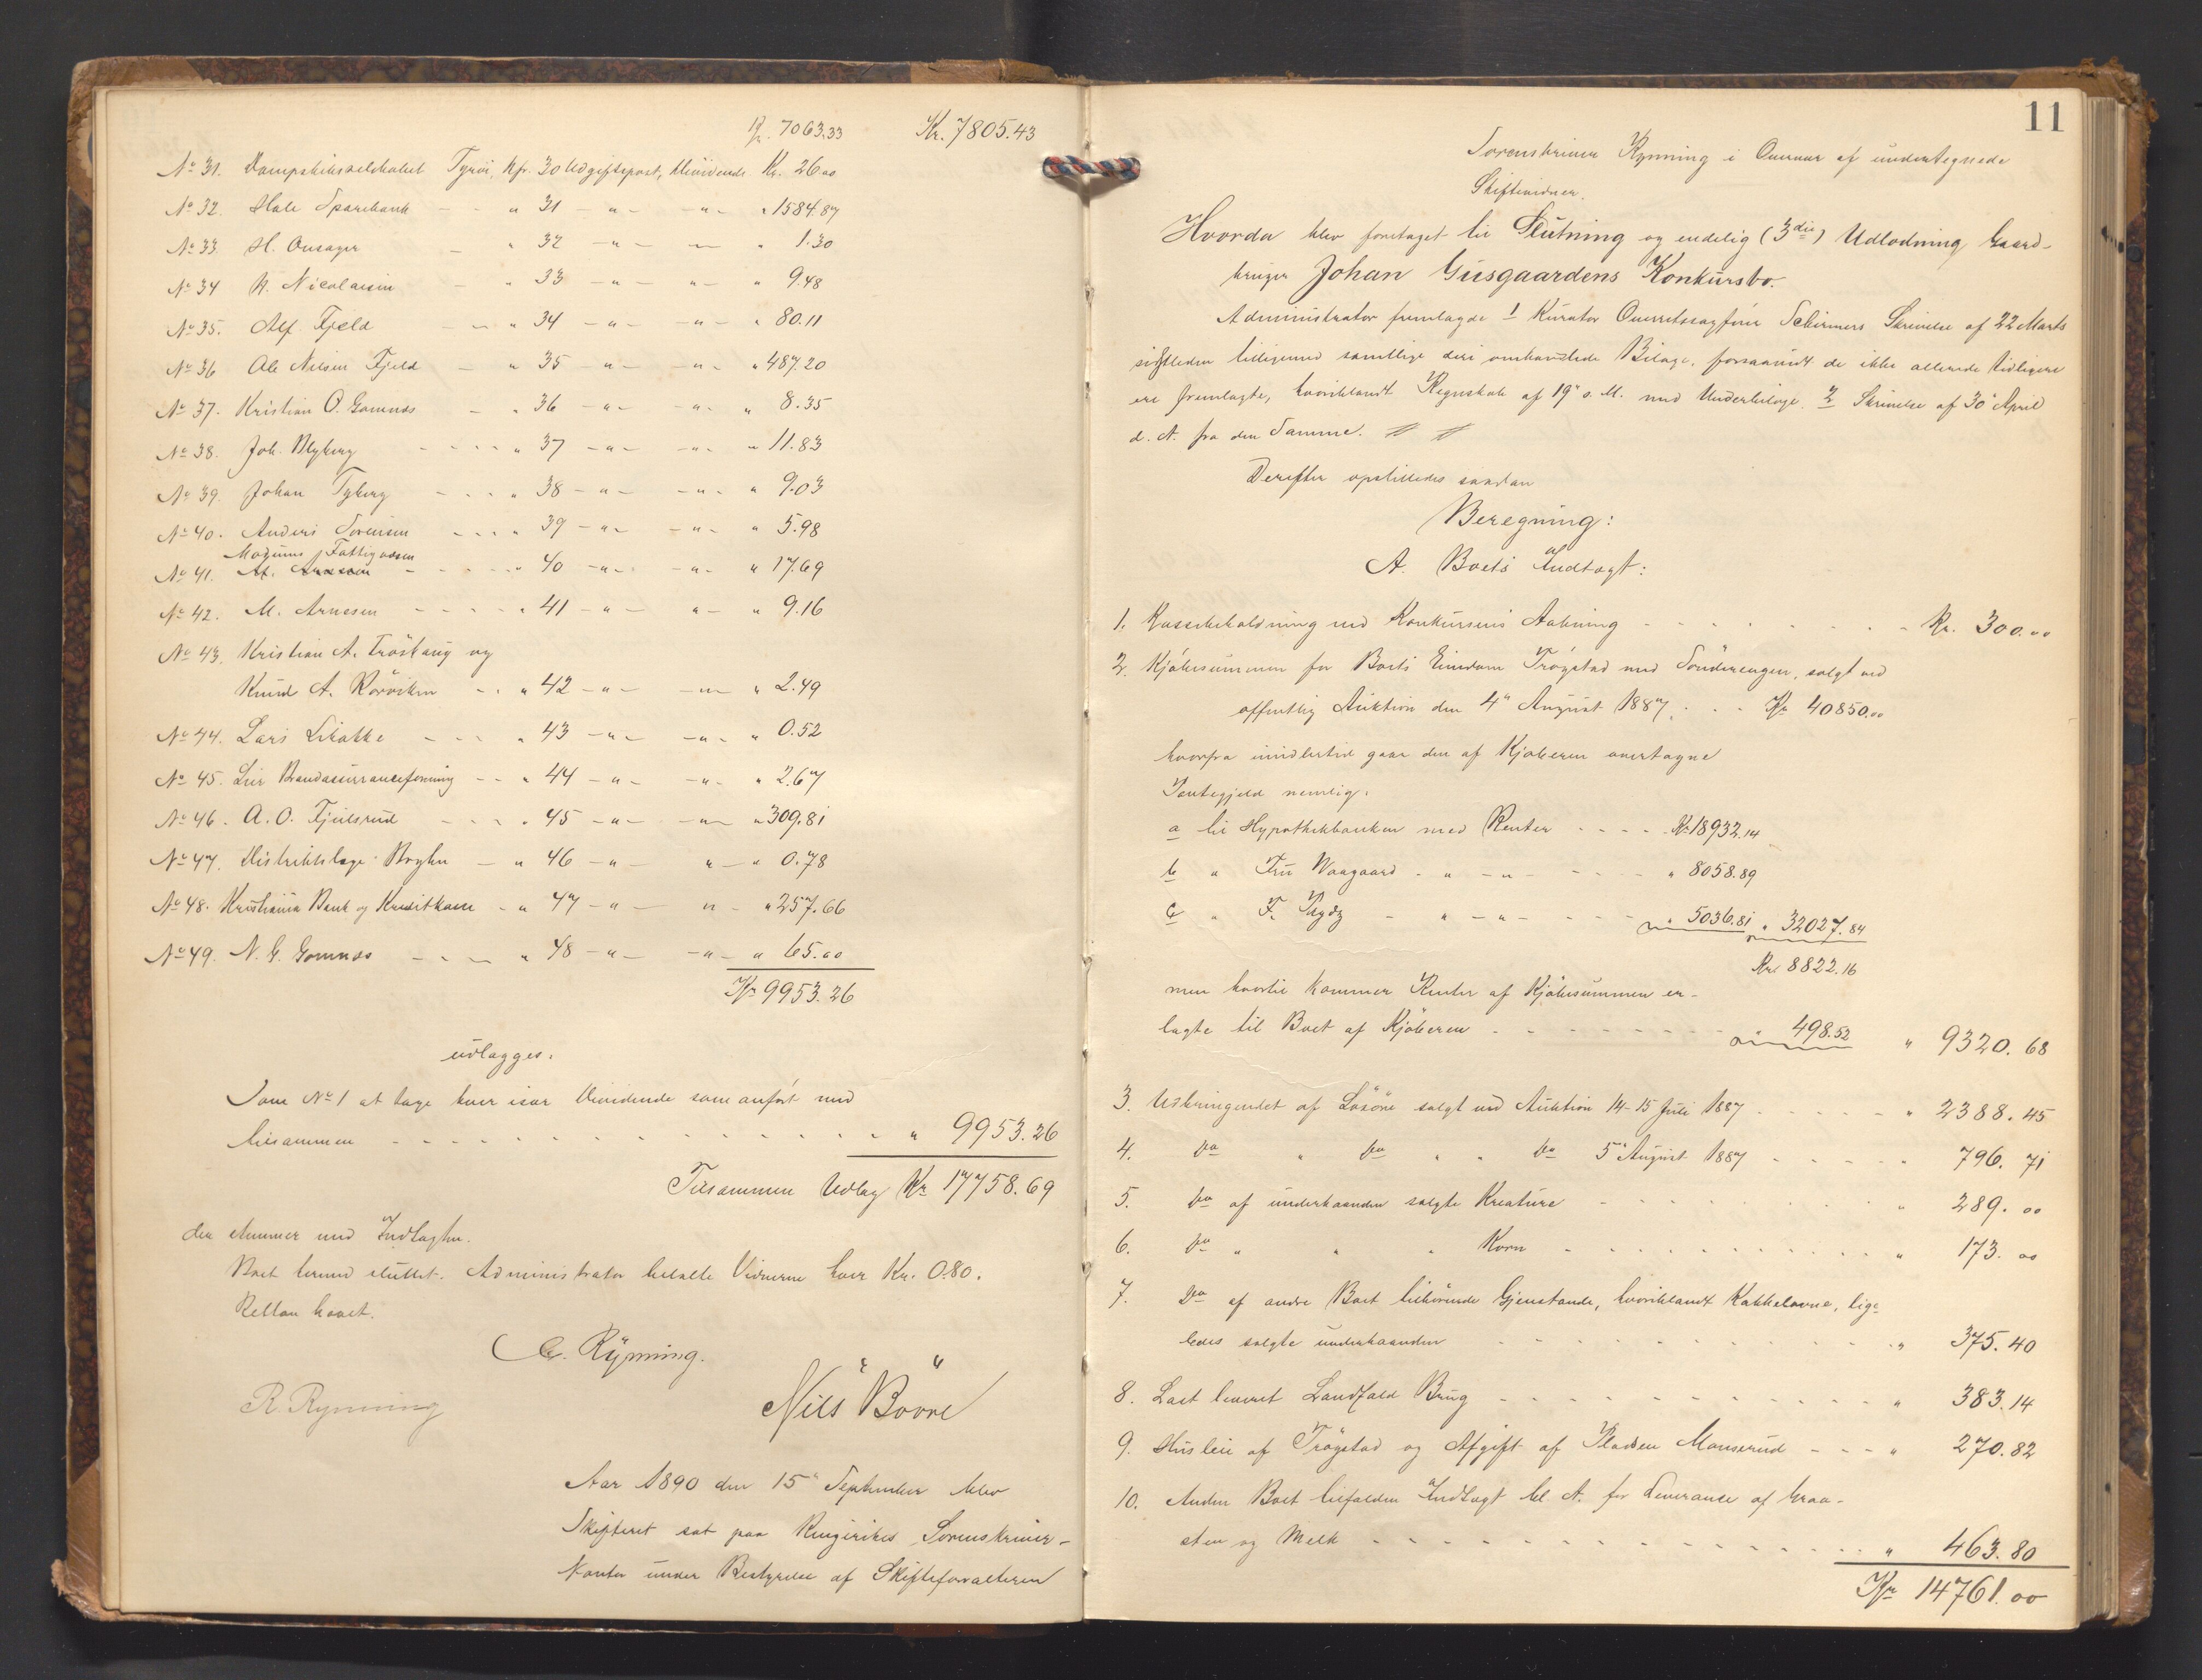 Kr. 7063.33 Kr. 7805.43
No 31. Dampskibsselskabet Tyrin, kfr. 30 Udgiftspost, Dividende Kr. 26.00
No 32. Hole Sparebank - - " 31 - " - - " - " 1584.87
No 33. H. Onsager - " 32 - " - - " 1.30
No 34 H. Nicolaisen - " 33 - " - " - " 9.48
No 35. Alf. Fjeld - " 34 - " - - " - " 80.11
No 36 Ole Nilsen Fjeld - " 35 - " - - " - " 487.20
No 37. Kristian O. Gomnæs - " 36 - " - - " - " 8.35
No 38. Joh. Blyberg - - - " 37 - " - - " - " 11.83
No 39. Johan Tyberg - - - " 38 - " - - " - " 9.03
No 40. Anders Sørensen - - - " 39 - " - - " - " 5.98
Modums Fattigvæsen
No 41. M. Arnesen - - - " 40 - " - - " - " 17.69
No 42. M. Arnesen - - - - " 41 - " - " - " 9.16
No 43. Kristian A. Frøshaug og
Knud A. Rørviken - - " 42 - " - - " - " 2.49
No 44. Lars Libakke - - - " 43 - " - - " - " 0.52
No 45. Lier Brandassuranceforening - - " 44 - " - - " - " 2.67
No 46. A. O. Fjeilsrud - - - " 45 - " - - " - " 309.81
No 47. Distriktslæge Bryhn - " 46 - " - " - " 0.78
No 48. Kristiania Bank og Kreditkasse - " 47 - " - " - " 257.66
No 49. N. G. Gomnæs - - - " 48 - " - - " - " 65.00
Kr 9953.26
udlægges.
Som No 1 at tage hver især Dividende som anført med
tilsammen - - - - - - - " 9953.26
Tilsammen Udlæg Kr 17758.69
der stemmer med Indtægten.
Boet hermed sluttet. Administrator betalte Vidnerne hver Kr. 0.80.
Retten hævet.
C. Rynning.
R. Rynning Nils Bøvre
Aar 1890 den 15de September blev
Skifteret sat paa Ringerikes Sorenskriver-
Kontor under Bestyrelse af Skifteforvalteren
11
Sorenskriver Rynning i Overvær af undertegnede
Skiftevidner.
Hvorda blev foretaget til Slutning og endelig (3die) Udlodning Gaard-
bruger Johan Gusgaardens Konkursbo.
Administrator fremlagde 1 Kurator Overretssagfører Schirmers Skrivelse af 22 Marts
sidstleden tilligemed samtlige deri omhandlede Bilage, forsaavidt de ikke allerede tidligere
ere fremlagte, hvoriblandt Regnskab af 19de s. M. med Underbilage. 2 Skrivelse af 30te April
d. A. fra den Samme.
Derefter opstilledes saadan
Beregning:
A. Boets Indtægt:
1. Kassebeholdning ved Konkursens Aabning - - - - - - - Kr. 300.00
2. Kjøbesummen for Boets Eiendom Trøgstad med Sønderengen, solgt ved
offentlig Auktion den 4de August 1887. - - Kr 40850.00
hvorfra imidlertid gaar den af Kjøberen overtagne
Pantegjeld nemlig:
a til Hypothekbanken med Renter - - - - Kr 18932.14
b " Fru Waagaard - " - " - - - - " 8058.89
c " F. Thydz - " - " - - - - " 5036.81 " 32027.84
Kr. 8822.16
men hvortil kommer Renter af Kjøbesummen er-
lagte til Boet af Kjøberen - - - - - - - " 498.52 " 9320.68
3. Udbringendet af Løsøre solgt ved Auktion 14-15 Juli 1887 - - - - " 2388.45
4. Do " Do " " Do 5te August 1887 - - - - " 796.71
5. Do af underhaanden solgte Kreature - - - - - " 289.00
6. Do " " " Korn - - - - - - - " 173.00
7. Do af andre Boet tilhørende Gjenstande, hvoriblandt Kakkelovne, lige-
ledes solgte underhaanden - - - - - - - - " 375.40
8. Last leveret Landfald Brug - - - - - - - - " 383.14
9. Husleie af Trøgstad og Afgift af Pladsen Monserud - - - " 270.82
10. Anden Boet tilfalden Indtægt bl. A. for Leverance af Graa-
sten og Melk - - - - - - - - - - - " 463.80
Kr 14761.00